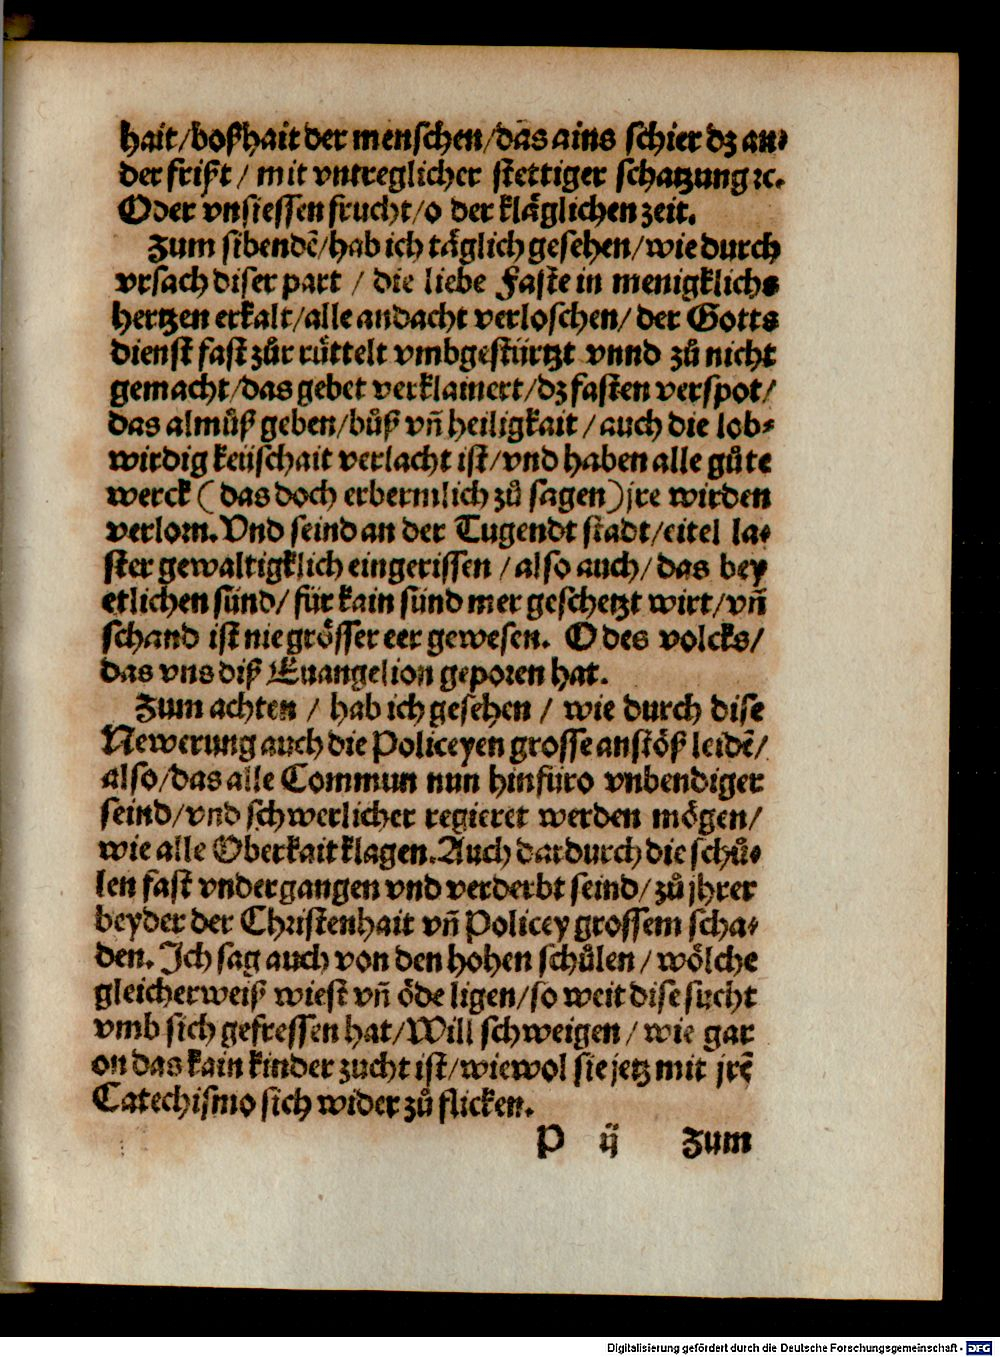 hait/boßhait der menschen/das ains schier dz an⸗
der frißt / mit vntreglicher stettiger schatzung ꝛc.
Oder vnsiessen frucht/o der kläglichen zeit.
Zum sibendē/hab ich täglich gesehen/wie durch
vrsach diser part / die liebe Faste in menigklichs
hertzen erkalt/alle andacht verloschen/ der Gotts
dienst fast zůr rüttelt vmbgestürtzt vnnd zů nicht
gemacht/das gebet verklainert/dz fasten verspot/
das almůß geben/bůß vñ heiligkait / auch die lob⸗
wirdig keüschait verlacht ist/vnd haben alle gůte
werck ( das doch erbermlich zů sagen) jre wirden
verlorn. Vnd seind an der Tugendt stadt/eitel la⸗
ster gewaltigklich eingerissen / also auch/ das bey
etlichen sünd/ für kain sünd mer geschetzt wirt/vñ
schand ist nie grösser eer gewesen. O des volcks/
das vns diß Euangelion geporen hat.
Zum achten / hab ich gesehen / wie durch dise
Newerung auch die Policeyen grosse anstöß leidē/
also/das alle Commun nun hinfüro vnbendiger
seind/vnd schwerlicher regieret werden mögen/
wie alle Oberkait klagen. Auch dardurch die schů⸗
len fast vndergangen vnd verderbt seind/ zů jhrer
beyder der Christenhait vñ Policey grossem scha⸗
den. Ich sag auch von den hohen schůlen / wölche
gleicherweiß wiest vñ öde ligen/so weit dise sucht
vmb sich gefressen hat/Will schweigen / wie gar
on das kain kinder zucht ist/wiewol sie jetz mit jrē
Catechismo sich wider zů flicken.
P ij Zum
Digitalisierung gefördert durch die Deutsche Forschungsgemeinschaft - DFG